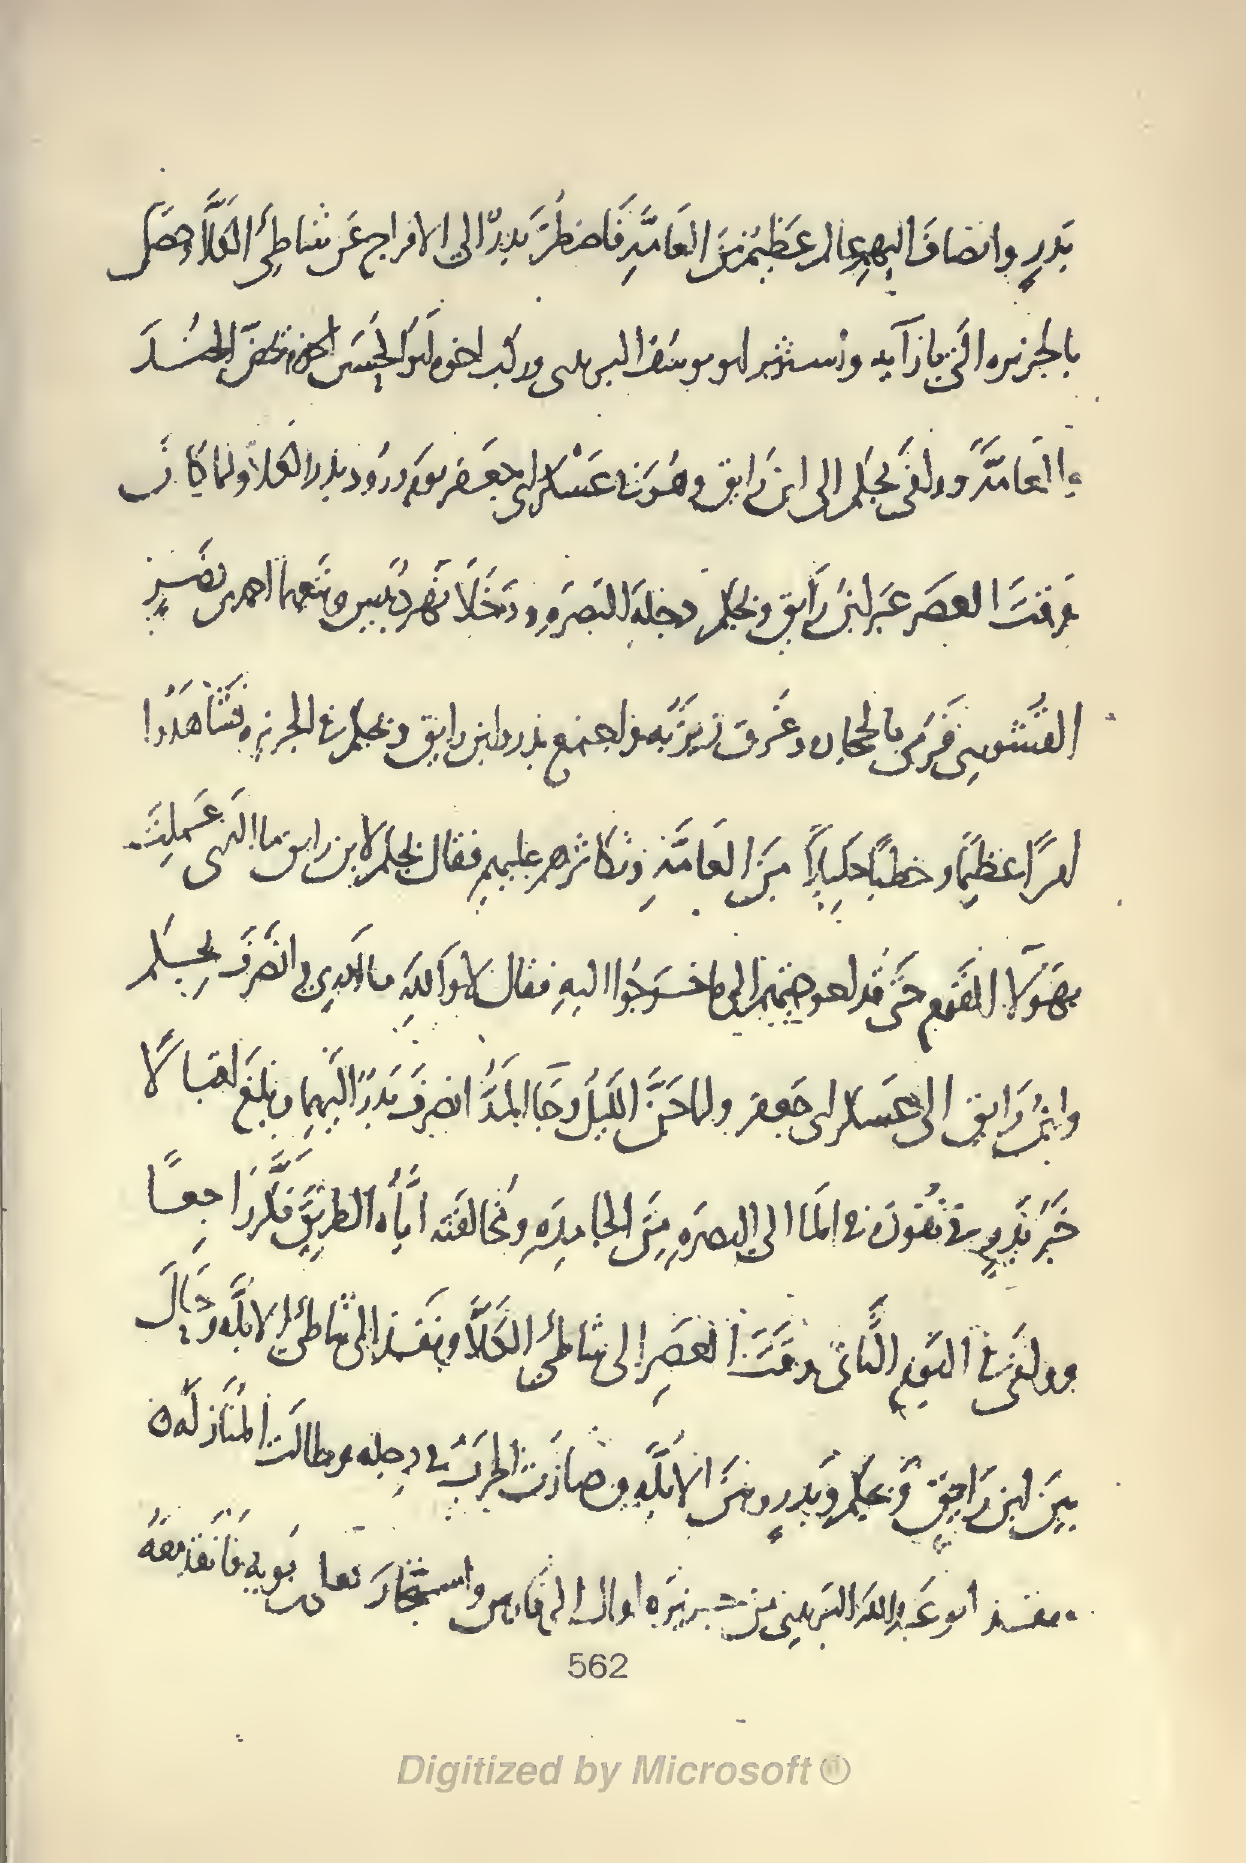 بَدرٍ وانضافَ اليهم عالم عظيم من العَامَّةِ فَاضطرَّ بَدرٌ الى الافراج عَن شاطِئ الكَلَّا وحصَل
بالجزيره التى بازآيه واستتر ابو يوسف البريدى وركب اخوه ابو الحسَين الجُندَ
والعَامَّةَ ووافَى بجكم الى ابن رايق وهُوَ فى عَسكر ابى جعفر يوم ورُود بدر الكلَّا ولما كانَ
وقتَ العصَر عَبر ابنُ رَايق وبجكم دجلةَ البَصَرَه ودَخَلَا نهر دُبيس ومَعهما احمد بن نصَر
القشورى فرمى بالحجاره وغَرِق زبزبه واجتمع بدر وابن رايق وبجكم فى الجزيره فشَاهَدُوا
امرًا عظيمًا وخطبًا كبيرًا مِنَ العَامَّةِ وتكاثرهم عليهم فقال بجكم لابن رايق ما الذى عَملتَ
بهَوُلَا القَوم حتَّى قد احوجتهم الى ما خرَجُوا اليهِ فقال لا واللهِ ما ادرى وانصَرفَ بجكم
وابنُ رَايق الى عَسكر ابى جَعفر ولما جَنَّ الليلُ وجَا المَدُّ انصرفَ بَدرٌ اليهما وبلغ اقبالًا
خَبَرُ بَدرٍ فى نفوذه فى المَا الى البصرَهِ مِنَ الجامِدَهِ ومُخَالفته ايَّاه الطريق فكَرَّ راجعًا
ووافَى فى اليَومِ الثَّانى وقتَ العَصرِ الى شاطئ الكَلَّا ونفَذ الى شاطئ الابلَّه وحَالَ
بينَ ابن رَايقٍ وبجكم وبَدرٍ وبينَ الابُلَّهِ وصارَت الحَربُ فى دجله وطالَت المُنَازلَه ه
ونفَذ ابو عَبدِ اللهِ البَريدى من جزيرَه اوال الى فَارس واستجارَ بعلى بن بُويه فَانفَذ مَعَهُ
562
Digitized by Microsoft ®